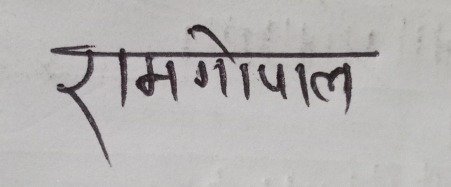 रामगोपाल